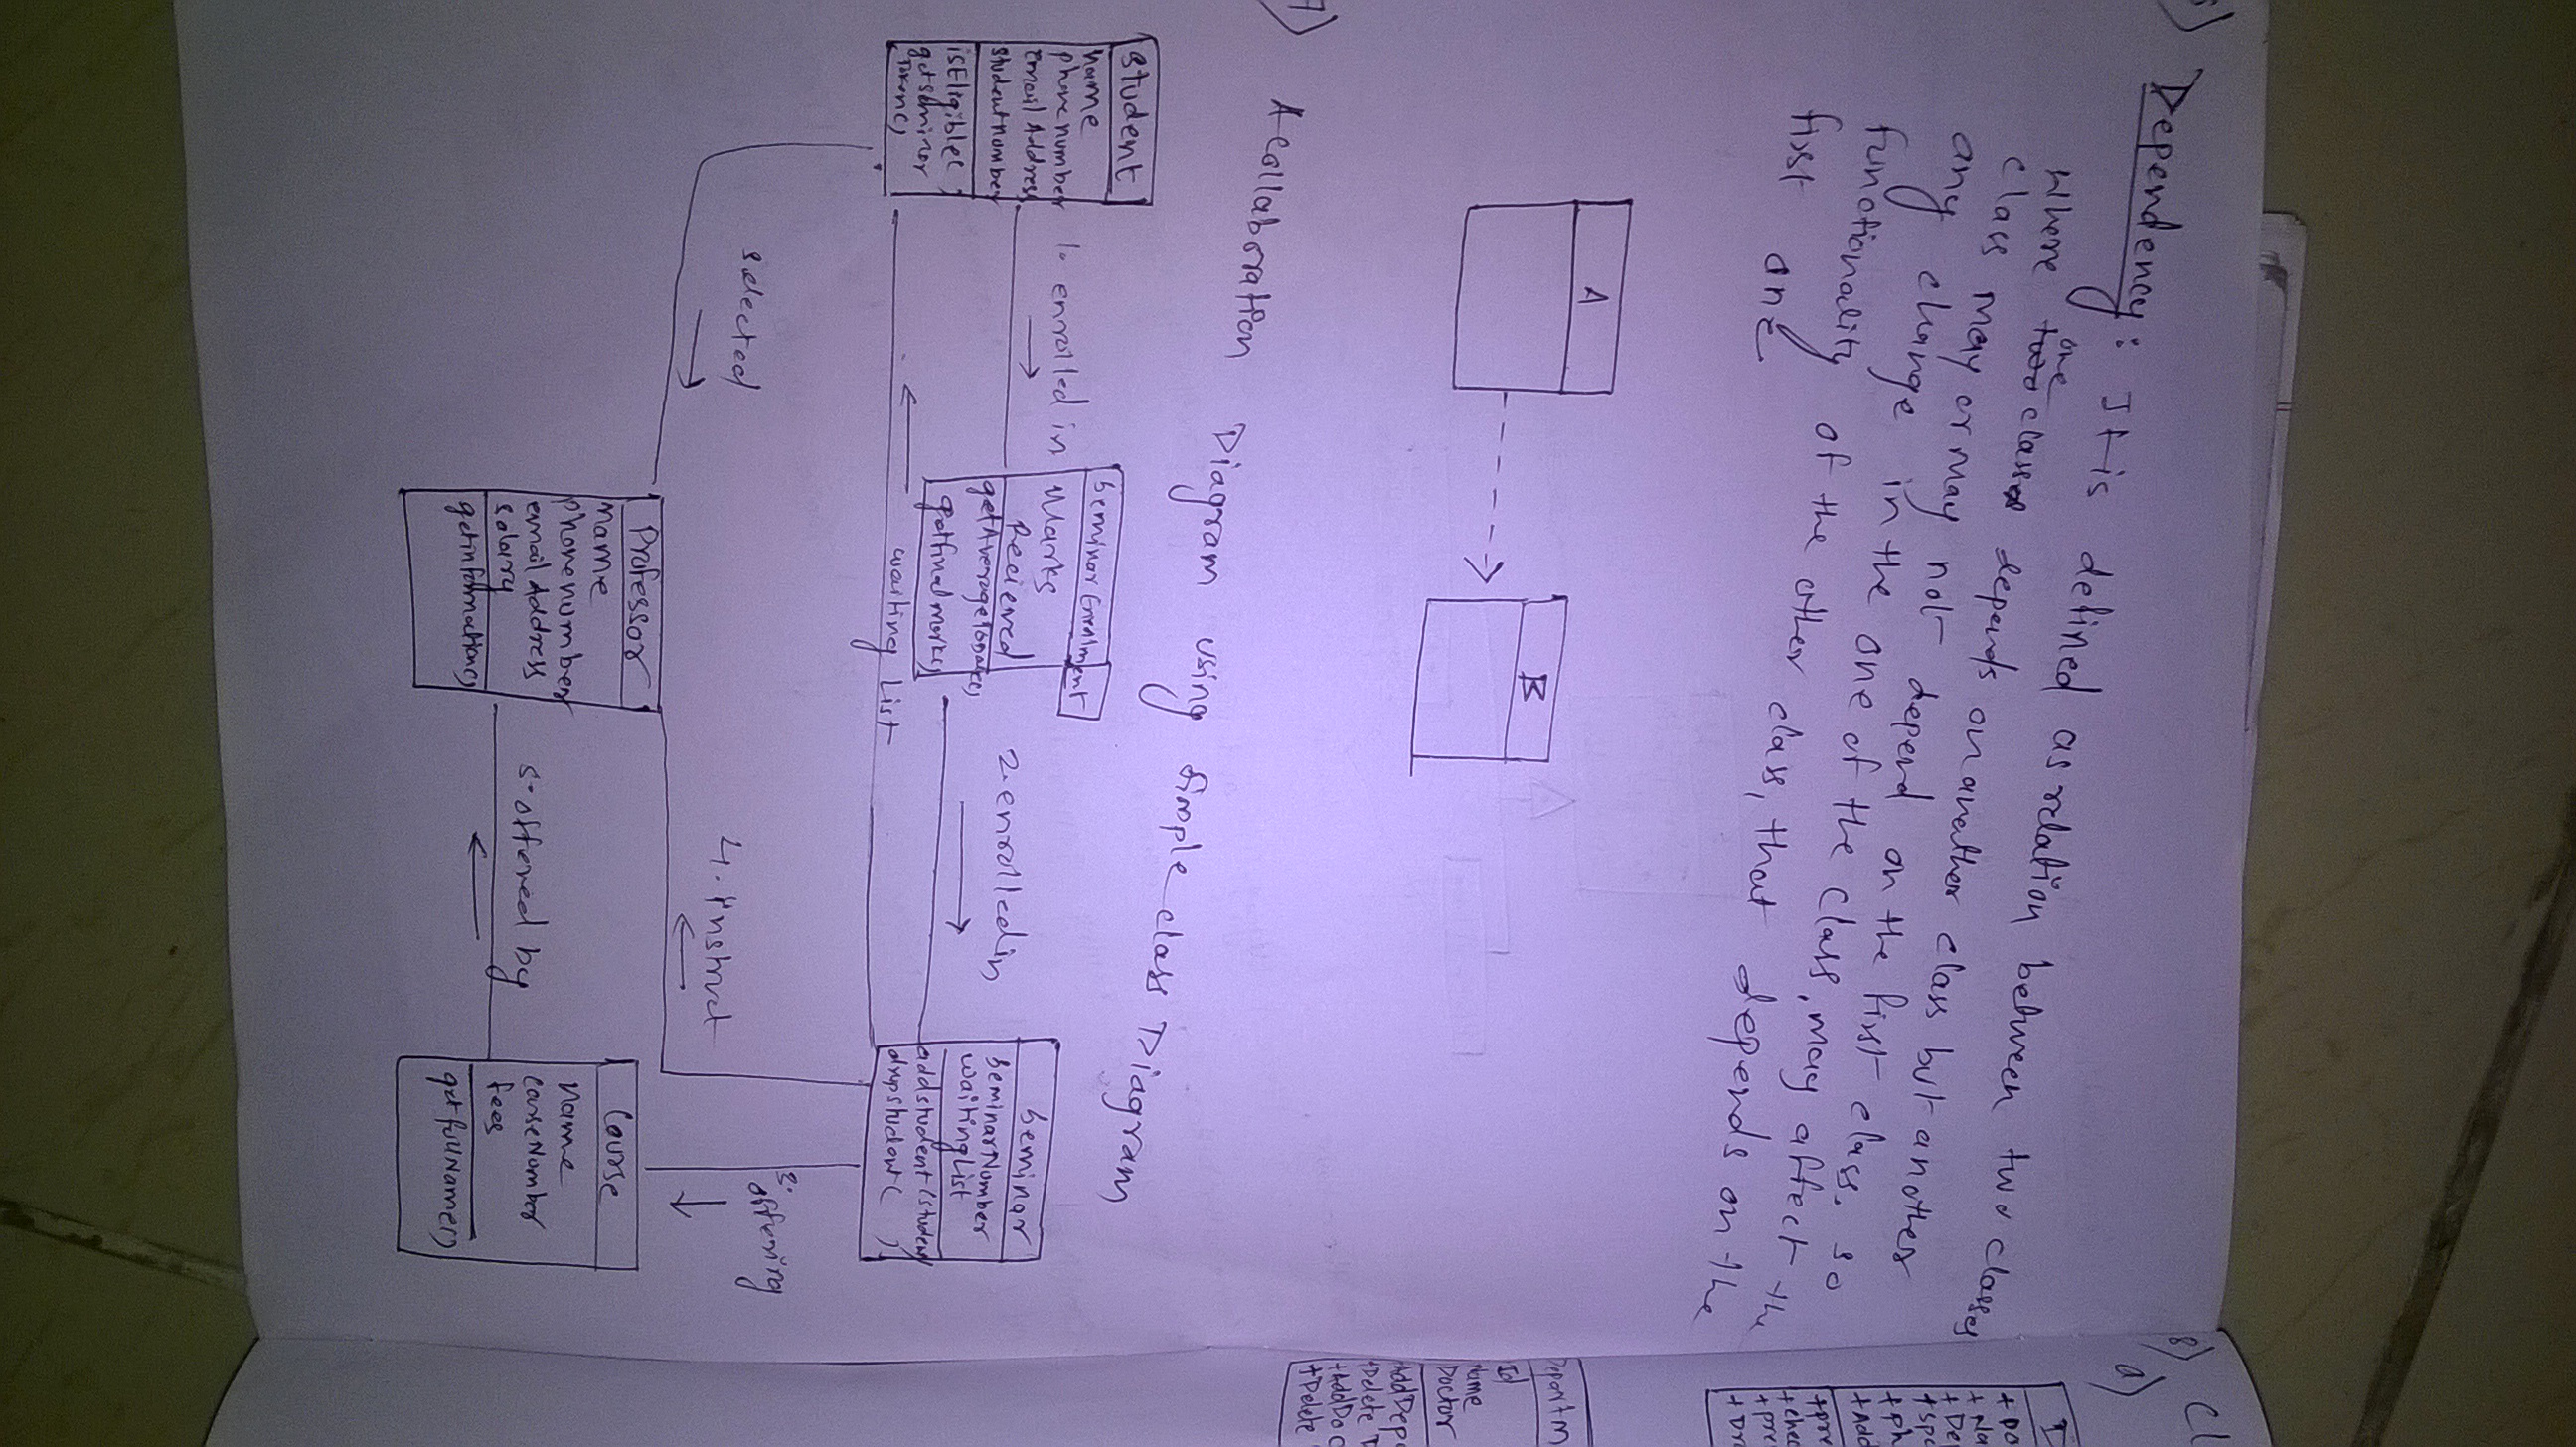 Dependency: It is defined as relation between two classes
where one class depends on another class but another
class may or may not depend on the first class. so
any change in the one of the class, may affect the
functionality of the other class, that depends on the
first one
A
B
7) A collaboration Diagram using simple class Diagram
student
name
phone number
email Address
student number
isEligible( )
get seminar
Taken()
1. enrolled in
Seminar Enrolment
Marks
Recieved
get Average to
get final marks
2. enrolled in
Seminar
Seminar Number
waiting List
add student (student)
drop student ( )
waiting List
selected
4. instruct
3.
offering
Professor
name
phone number
email Address
salary
get information()
5. offered by
Course
Name
Corse Number
fees
get full Name()
8) Cl
a)
Id
Name
Doctor
+ Delete